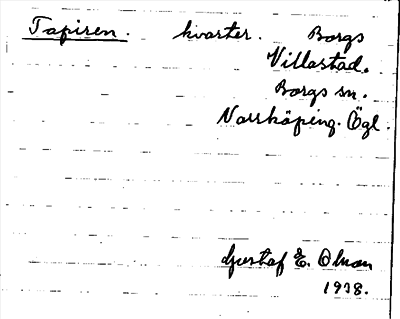 Tapiren. kvarter. Borgs
Villastad.
Borgs sn.
Norrköping. Ögl.
Gustaf E. Olson
1938.